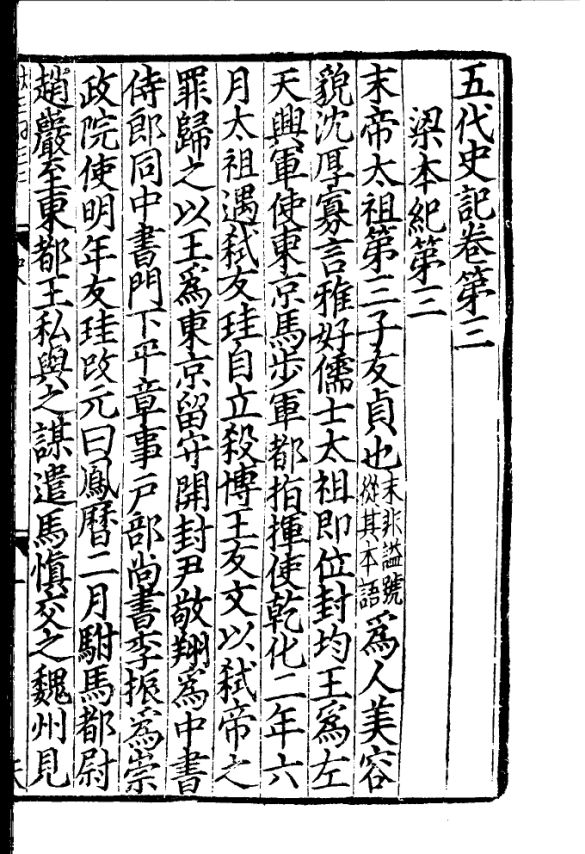 五代史記卷第三
梁本紀第三
末帝太祖第三子友貞也末非謚號從其本語爲人美容
貌沈厚寡言雅好儒士太祖即位封均王爲左
天興軍使東京馬步軍都指揮使乾化二年六
月太祖遇弒友珪自立殺博王友文以弒帝之
罪歸之以王爲東京留守開封尹敬翔爲中書
侍郎同中書門下平章事戶部尚書李振爲崇
政院使明年友珪改元曰鳳曆二月駙馬都尉
趙巖至東都王私與之謀遣馬愼交之魏州見